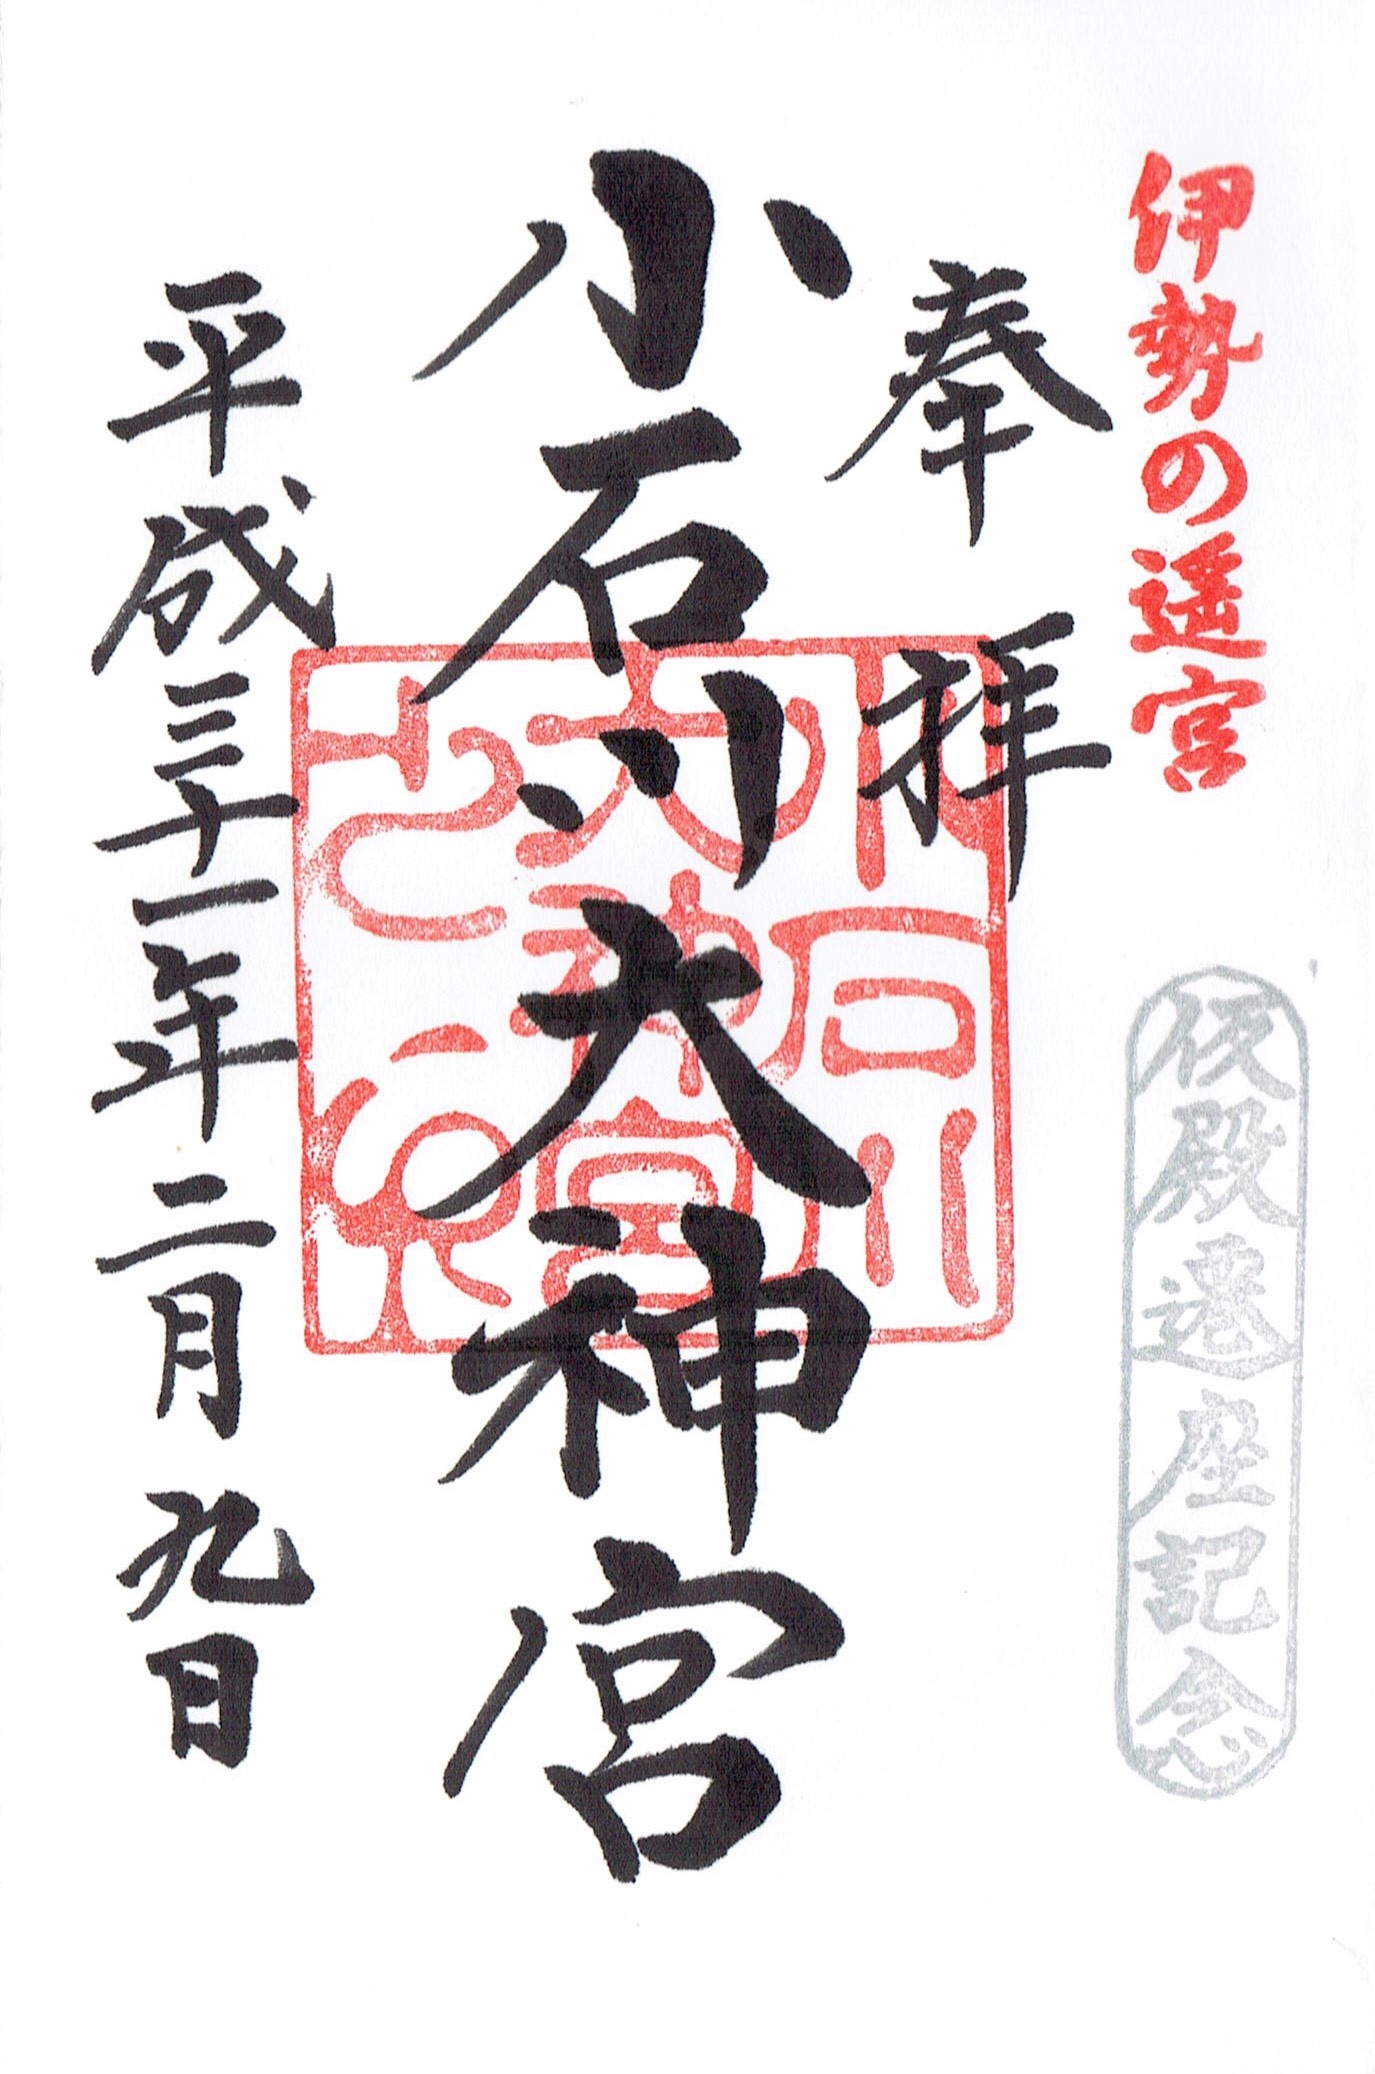 伊勢の遥宮
仮殿遷座記念
奉拝
小石川大神宮
小石川大神宮之印
平成三十一年二月九日